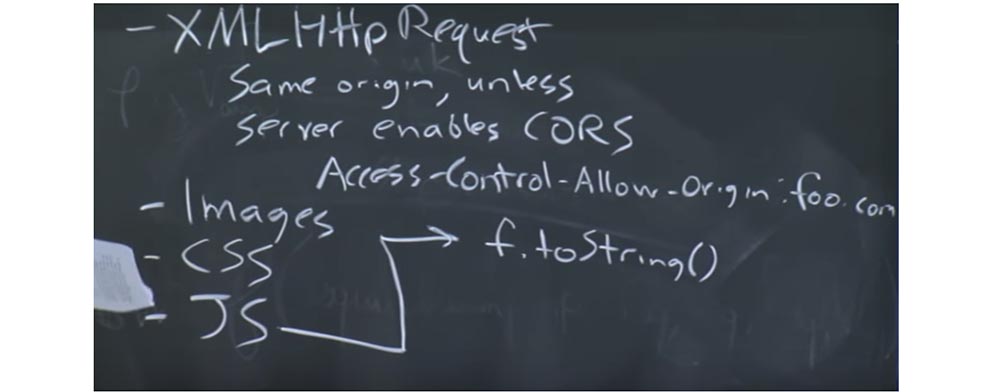 - XMLHttpRequest
Same origin, unless
server enables CORS
Access-Control-Allow-Origin: foo.com
- Images
- CSS
f.toString()
- JS